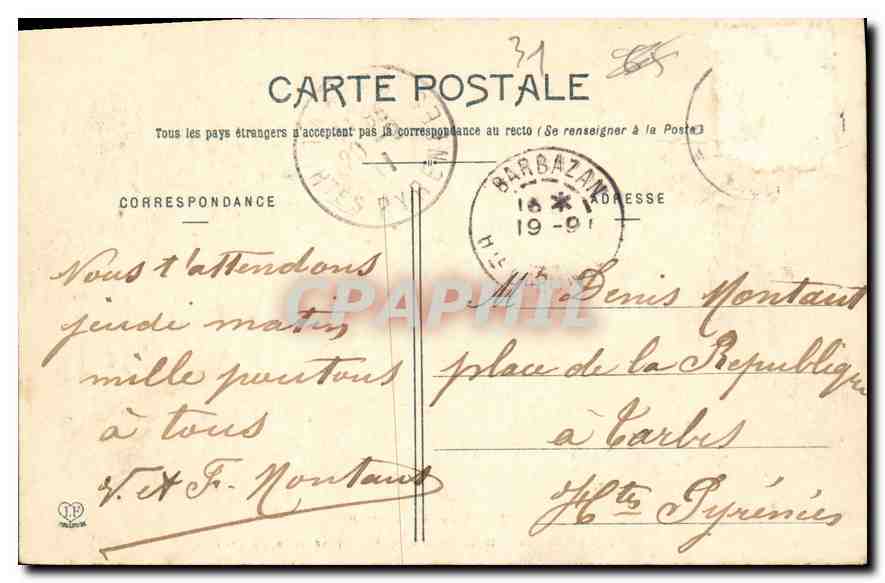 31
CARTE POSTALE
Tous les pays étrangers n'acceptent pas la correspondance au recto (Se renseigner à la Poste)
CORRESPONDANCE
ADRESSE
BARBAZAN
16 * 1
19 -9
HTES PYRENEES
Nous t'attendons
jeudi matin,
mille poutous
à tous
V. et F. Montaut
M Denis Montaut
place de la République
à Tarbes
Htes Pyrénées
CPAPHIL